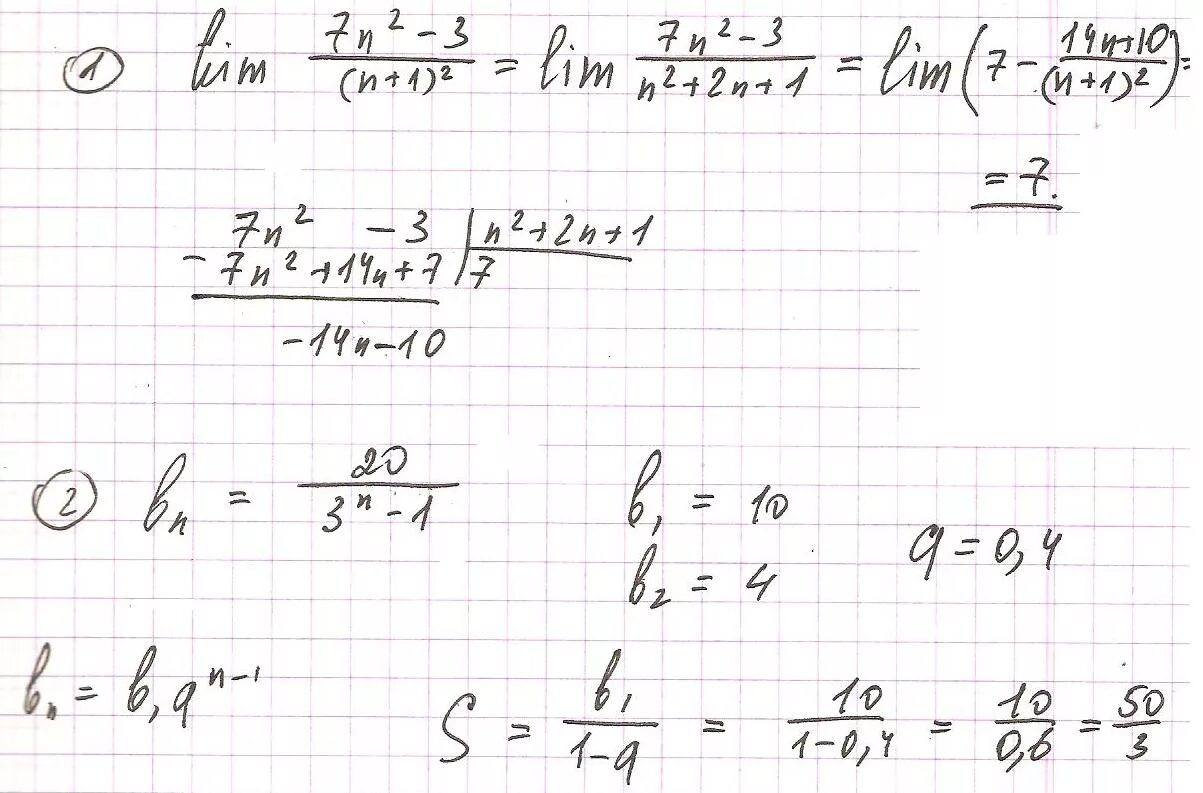 ① lim (7n² - 3)/((n+1)²) = lim (7n² - 3)/(n² + 2n + 1) = lim (7 - (14n+10)/((n+1)²)) =
= 7.
7n² - 3 | n² + 2n + 1
- 7n² + 14n + 7 | 7
-14n - 10
② bₙ = 20/(3ⁿ - 1) b₁ = 10
b₂ = 4 q = 0,4
bₙ = b₁qⁿ⁻¹ S = b₁/(1-q) = 10/(1-0,4) = 10/0,6 = 50/3